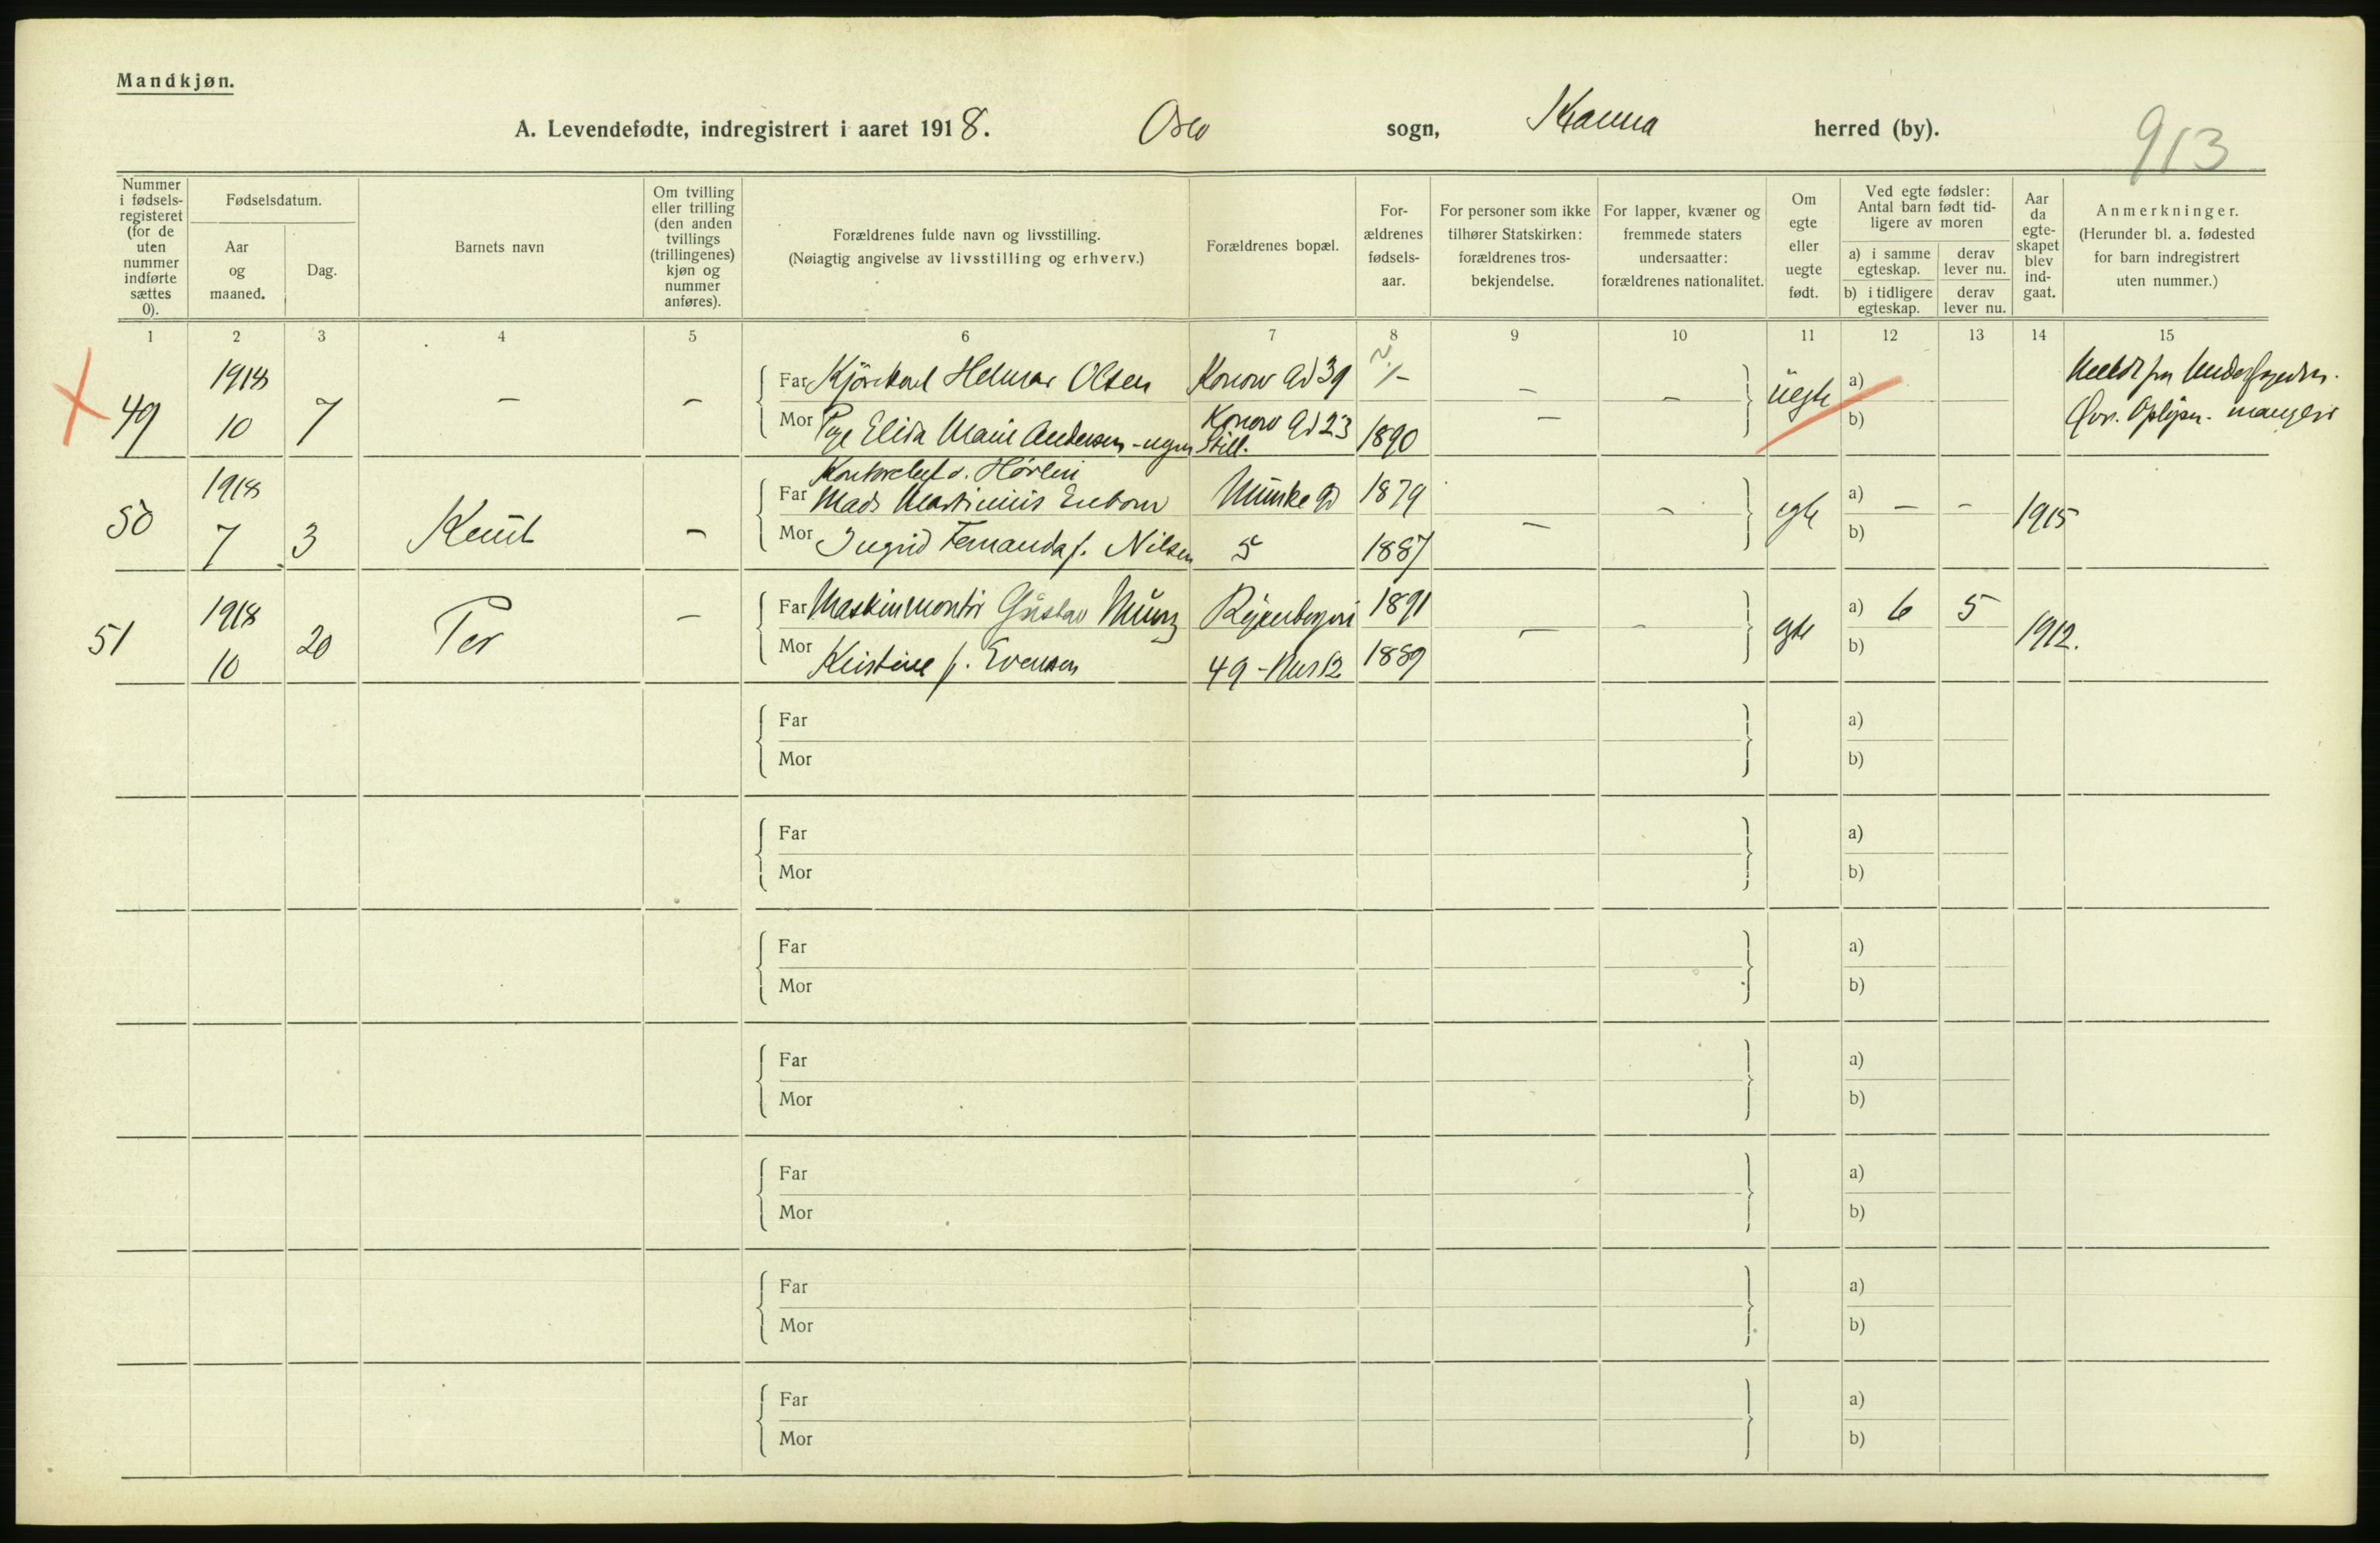 Mandkjøn.
A. Levendefødte, indregistrert i aaret 1918. Oslo sogn, herred (by).
913
Nummer i fødsels-registeret (for de uten nummer indførte sættes 0).
Fødselsdatum.
Aar og maaned.
Dag.
Barnets navn
Om tvilling eller trilling (den anden tvillings (trillingenes) kjøn og nummer anføres).
Forældrenes fulde navn og livsstilling.
(Nøiagtig angivelse av livsstilling og erhverv.)
Forældrenes bopæl.
For-ældrenes fødsels-aar.
For personer som ikke tilhører Statskirken: forældrenes tros-bekjendelse.
For lapper, kvæner og fremmede staters undersaatter: forældrenes nationalitet.
Om egte eller uegte født.
Ved egte fødsler: Antal barn født tid-ligere av moren
a) i samme egteskap.
derav lever nu.
b) i tidligere egteskap.
derav lever nu.
Aar da egte-skapet blev ind-gaat.
Anmerkninger.
(Herunder bl. a. fødested for barn indregistrert uten nummer.)
1 2 3 4 5 6 7 8 9 10 11 12 13 14 15
X 49 1918 10 7 – –
Far Kjörekarl Helmar Olsen Konow Gd 39 ? – – –
Mor Pige Elida Marie Andersen - ugen Still. Konow Gd 23 1890 –
uegte a) b)
Meldt fra
Opløsn. mangler
50 1918 7 3 Knut –
Kontorchef
Far Mads Martinius Munke Gd 1879
Mor Ingrid Fernanda f. Nilsen 5 1887 – –
egte a) – – b) 1915
51 1918 10 20 Per –
Far Maskinmontör Gustav 1891
Mor Kristine f. Evensen 49 - 1889 – –
egte a) 6 5 b) 1912.
Far a)
Mor b)
Far a)
Mor b)
Far a)
Mor b)
Far a)
Mor b)
Far a)
Mor b)
Far a)
Mor b)
Far a)
Mor b)